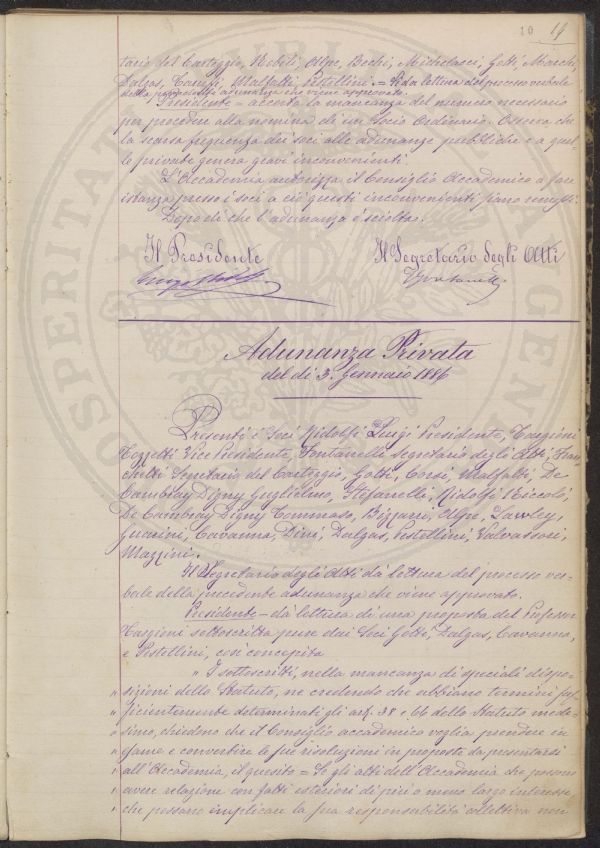 10 14
tario del Carteggio, Robiti, Alpe, Bechi, Michelacci, Gotti, Marchi,
Dalgas, Caruso, Malfatti, Pestellini. = Si dà lettura del processo verbale
della precedente adunanza che viene approvato.
Presidente = accerta la mancanza del numero necessario
per procedere alla nomina di un Socio Ordinario. Osserva che
la scarsa frequenza dei soci alle adunanze pubbliche e a quel-
le private genera gravi inconvenienti.
L'Accademia autorizza il Consiglio Accademico a fare
istanza presso i soci a ciò questi inconvenienti siano
Dopo di che l'adunanza è sciolta.
Il Presidente Il Segretario degli Atti
Adunanza Privata
del dì 3. Gennaio 1886
Presenti i Soci Ridolfi Luigi Presidente, Targioni
Tozzetti Vice Presidente, Fontanelli Segretario degli Atti, Fran-
chetti Segretario del Carteggio, Gotti, Corsi, Malfatti, De
Cambray Digny Guglielmo, Stefanelli, Ridolfi Niccolò,
De Cambray Digny Tommaso, Bizzarri, Alpe, Lawley,
Guarini, Cavanna, Dini, Dalgas, Pestellini, Valvassori,
Mazzini.
Il Segretario degli Atti dà lettura del processo ver-
bale della precedente adunanza che viene approvato.
Presidente = dà lettura di una proposta del Professor
Targioni sottoscritta pure dai Soci Gotti, Dalgas, Cavanna,
e Pestellini, così concepita
" I sottoscritti, nella mancanza di speciali dispo-
" sizioni dello Statuto, ne credendo che abbiano termini suf-
" ficientemente determinati gli art. 38 e 66 dello Statuto mede-
" simo, chiedono che il Consiglio accademico voglia prendere in
" esame e convertire le sue risoluzioni in proposte da presentarsi
" all'Accademia, il quesito = Se gli atti dell'Accademia che possono
" avere relazione con fatti esteriori di più o meno largo interesse
" che possano implicare la sua responsabilità collettiva non